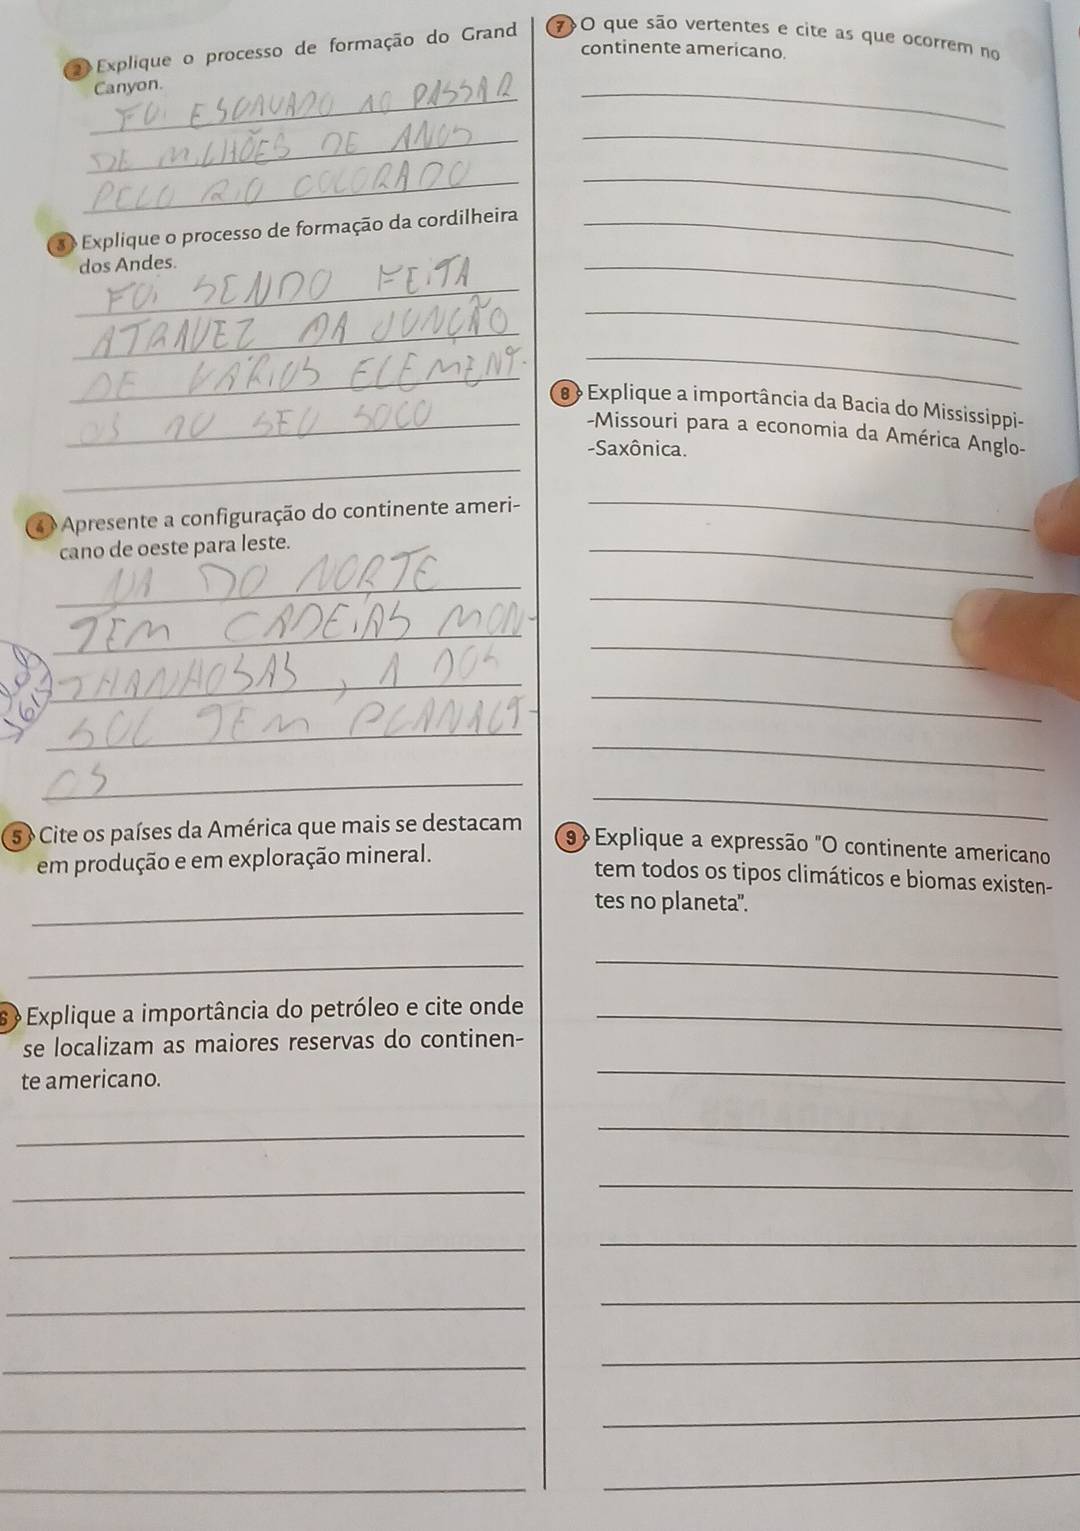 2 Explique o processo de formação do Grand
Canyon.
FOI ESCAVADO AO PASSAR
DE MILHÕES DE ANOS
PELO RIO COLORADO
3 Explique o processo de formação da cordilheira
dos Andes.
FOI SENDO FEITA
ATRAVEZ DA JUNÇÃO
DE VÁRIOS ELEMENT
OS NO SEU SOLO
4 Apresente a configuração do continente ameri-
cano de oeste para leste.
NA DO NORTE
TEM CADEIAS MON-
THANHOSAS, A DOS
SUL TEM PLANALT-
OS
5 Cite os países da América que mais se destacam
em produção e em exploração mineral.
6 Explique a importância do petróleo e cite onde
se localizam as maiores reservas do continen-
te americano.
7 O que são vertentes e cite as que ocorrem no
continente americano.
8 Explique a importância da Bacia do Mississippi-
-Missouri para a economia da América Anglo-
-Saxônica.
9 Explique a expressão "O continente americano
tem todos os tipos climáticos e biomas existen-
tes no planeta".